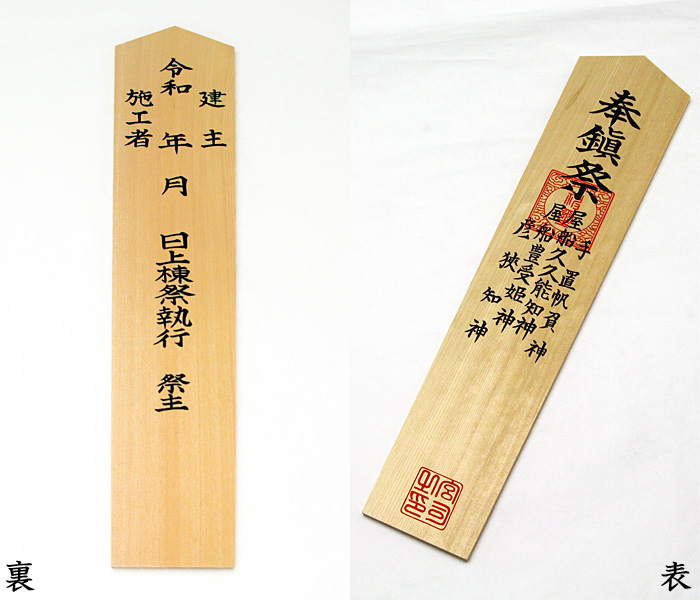 建主
令和 年 月 日上棟祭執行 祭主
施工者
裏
奉鎮祭
手置帆負神
屋船久久能知神
屋船豊受姫神
彦狭知神
宮司之印
表